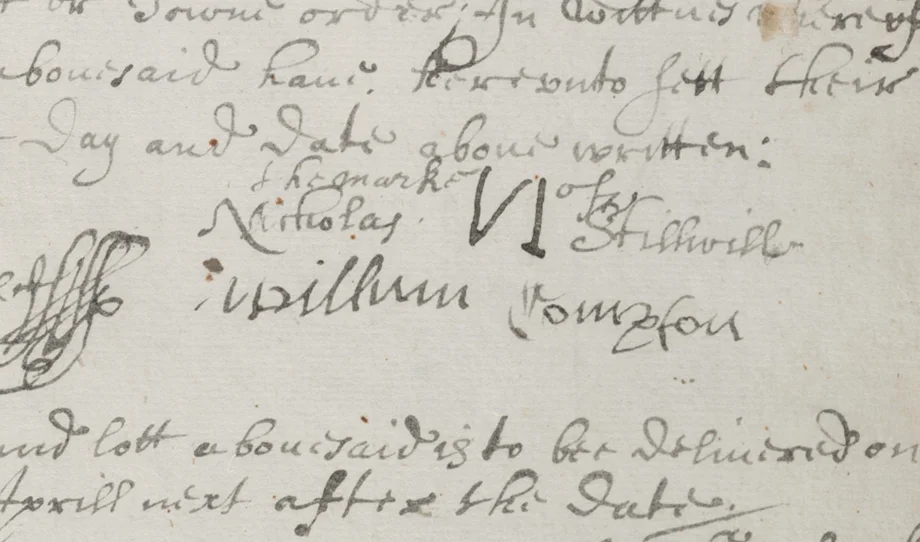 or Towne order; In Wittnes whereof
abouesaid haue hereunto sett their
Day and Date aboue written:
the marke N of
Nicholas Stillwill
William Compton
and lott abouesaid is to bee deliuered on
Aprill next after the Date.